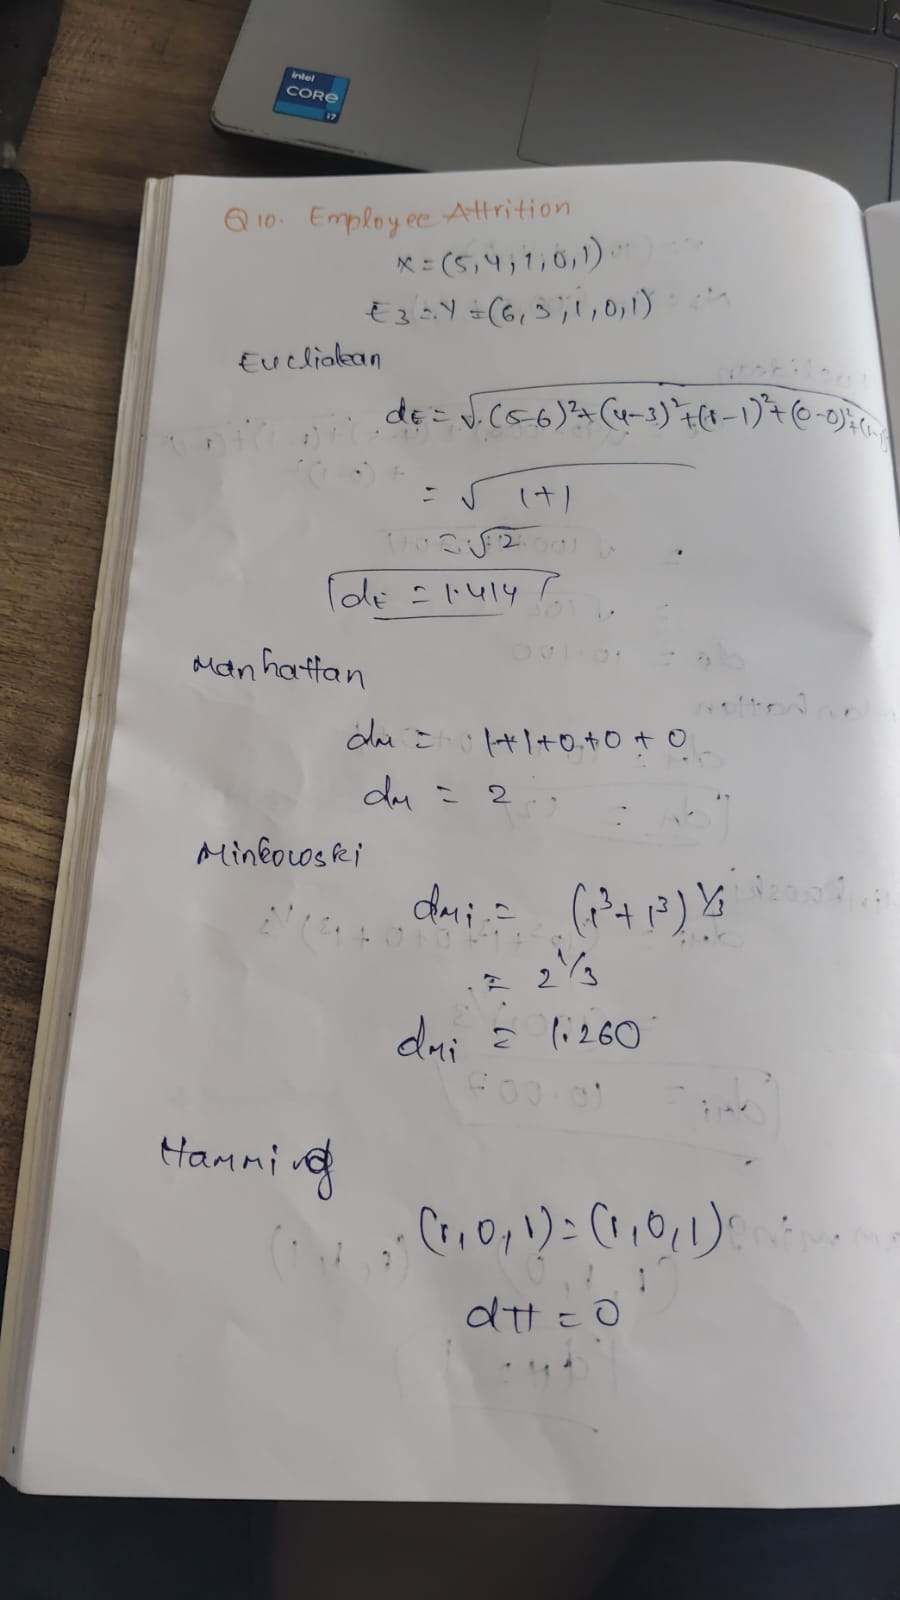 intel
CORE
i7
Q10. Employee Attrition
x = (5,4,1,0,1)
E3 = y = (6,3,1,0,1)
Euclidean
dE = √(5-6)²+(4-3)²+(1-1)²+(0-0)²+(1-
= √1+1
= √2
dE = 1.414
Manhattan
dM = 1+1+0+0+0
dM = 2
Minkowski
dMi = (1³+1³)^1/3
= 2^1/3
dMi = 1.260
Hamming
(1,0,1) = (1,0,1)
dH = 0